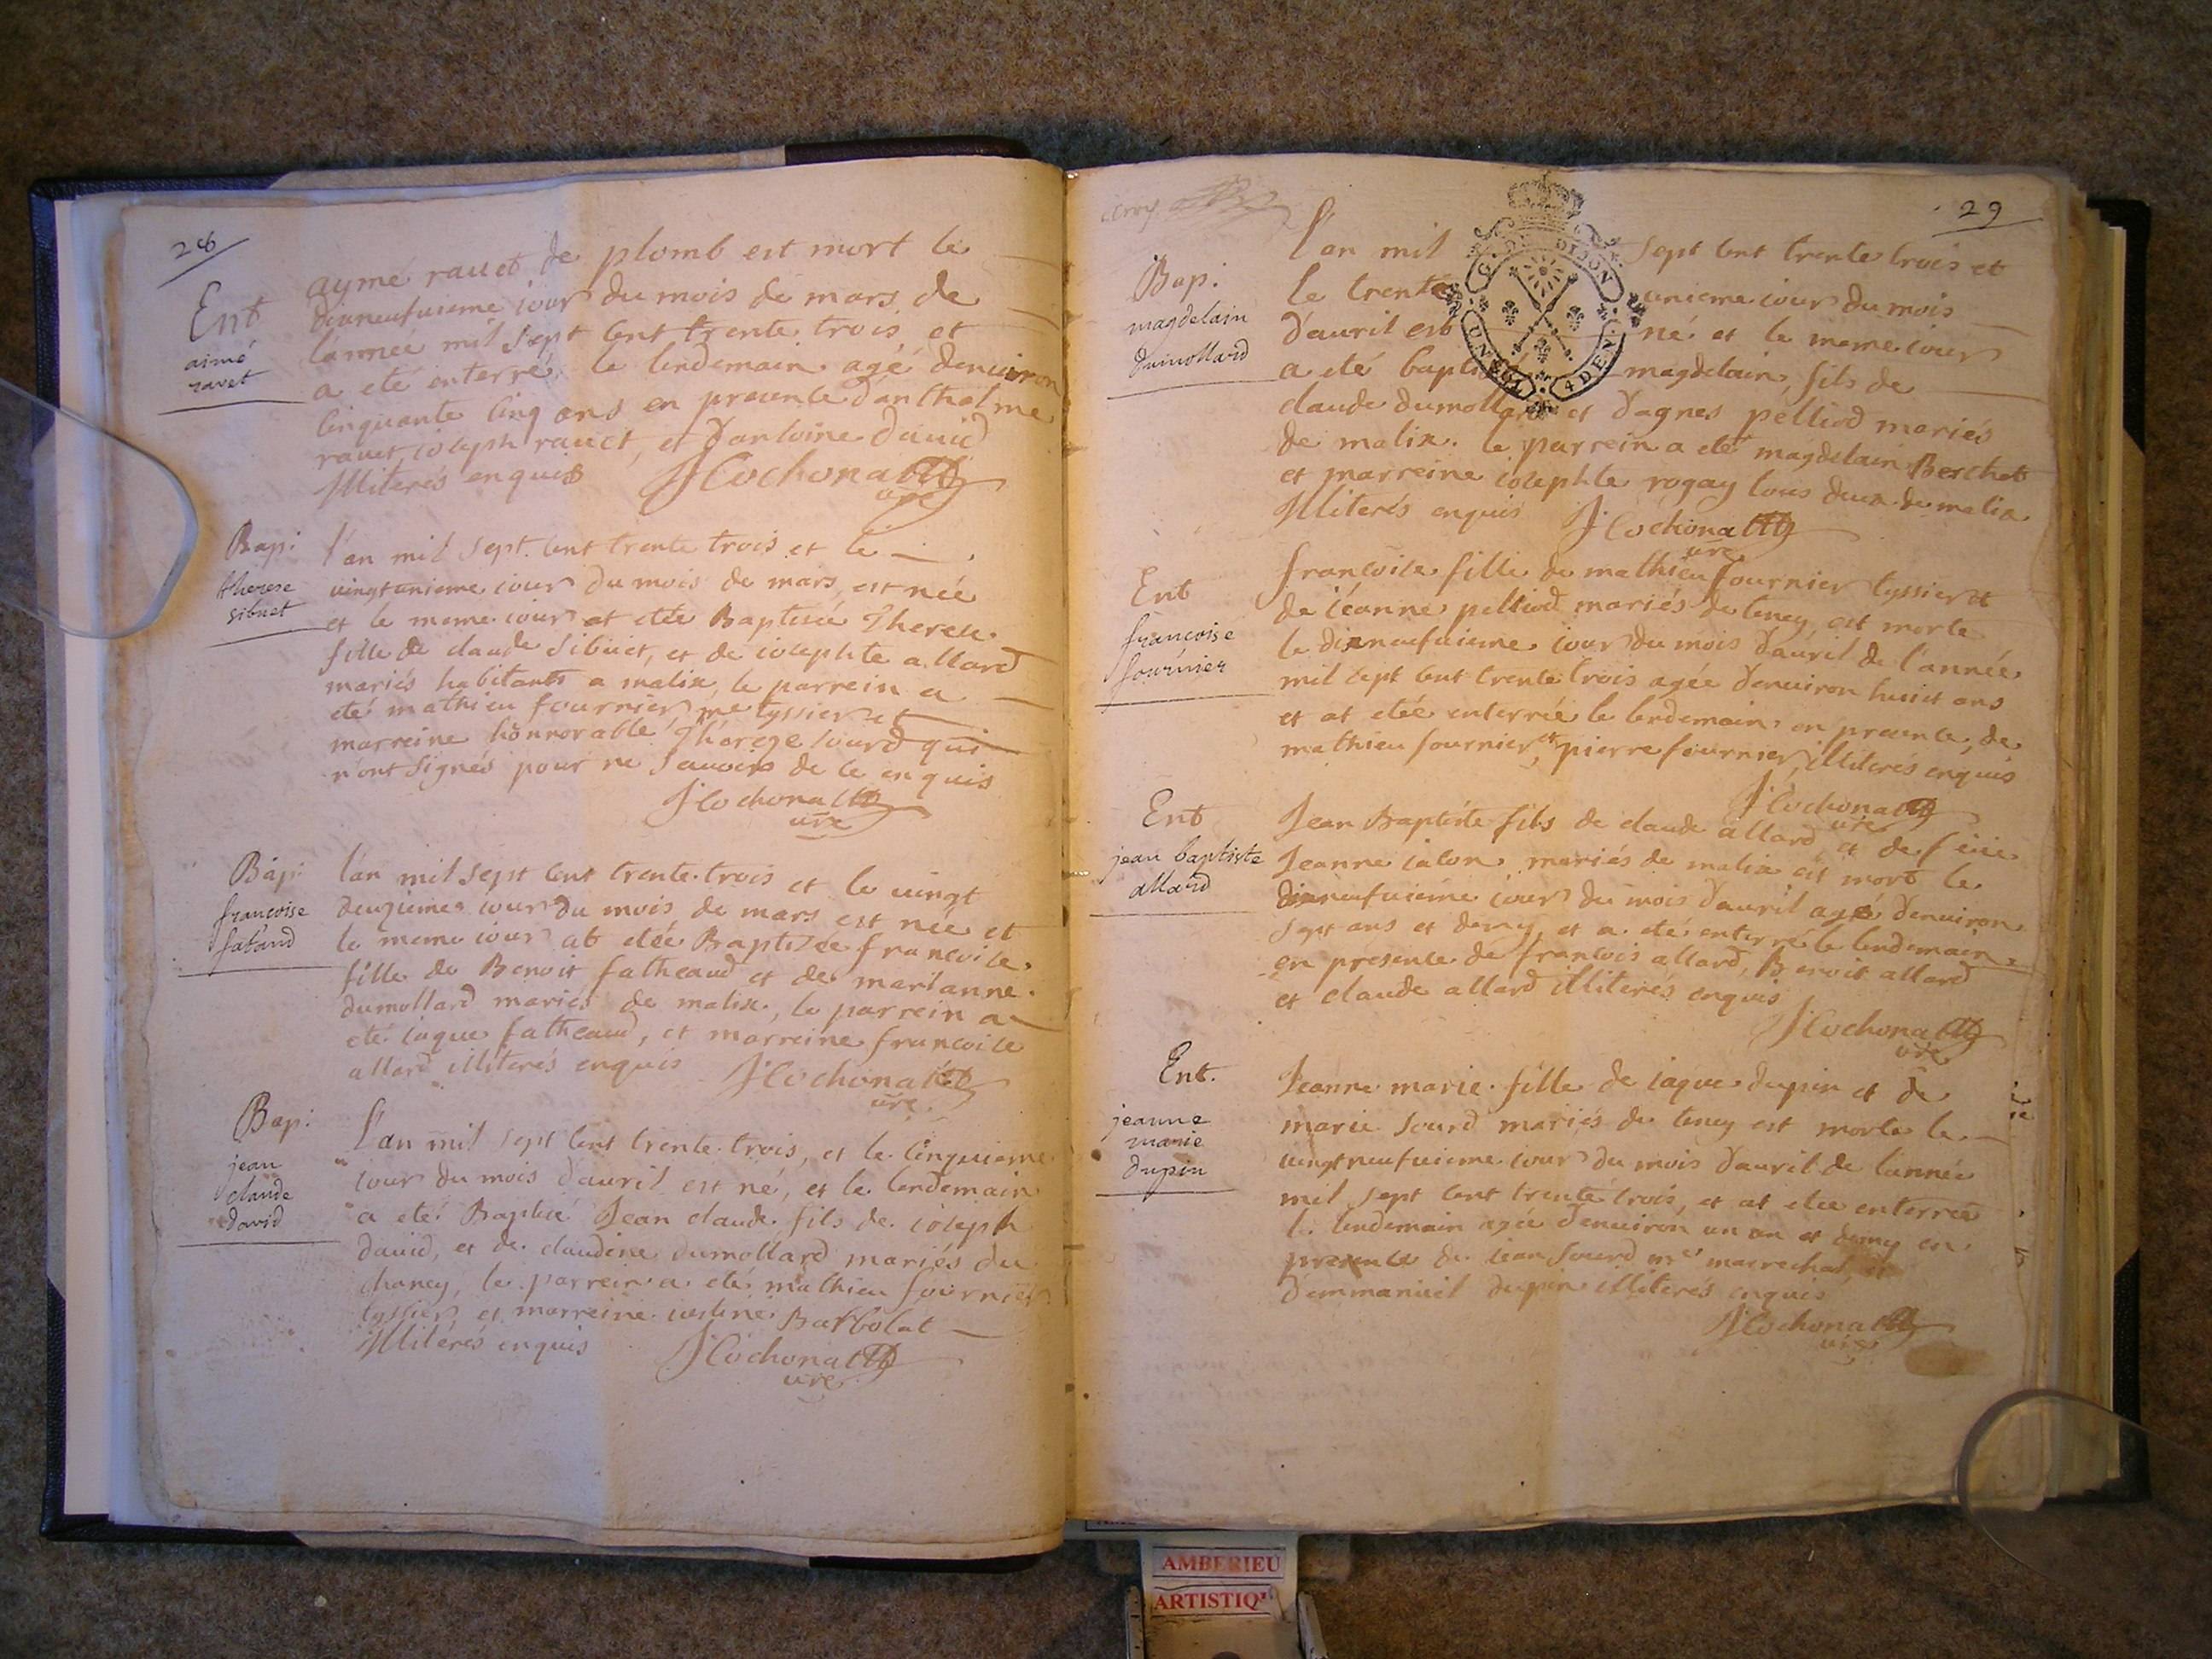 28
Ent
aimé
ravet
aymé rauet de plomb est mort le
dixneufuieme iour du mois de mars de
l'année mil sept cent trente trois et
a eté enterré le lendemain agé denuiron
cinquante cinq ans en presence danthelme
rauet, ioseph rauet, et d'antoine dauid
illiterés enquis JCochonatt
ure
Bap:
therese
sibuet
l'an mil sept cent trente trois et le
uingtunieme iour du mois de mars est née
et le meme iour at etée Baptisée Therese
fille de claude Sibuet, et de iosephte allard
mariés habitants a malix, le parrein a
eté mathieu fournier me tyssier et
marreine honnorable Thereze sourd qui
n'ont signés pour ne scauoir de ce enquis
JCochonatt
ure
Bap:
françoise
fatâud
lan mil sept cent trente trois et le uingt
deuzieme iour du mois de mars est née et
le meme iour at etée Baptisée francoise
fille de Benoit fatheaud et de marianne
dumollard mariés de malix, le parrein a
eté iaque fatheaud, et marreine francoise
allard illiterés enquis JCochonatt
ure
Bap:
jean
claude
david
L'an mil sept cent trente trois, et le cinquieme
iour du mois d'auril est né, et le lendemain
a eté Baptisé Jean claude fils de ioseph
dauid, et de claudine dumollard mariés du
chaney, le parrein a eté mathieu fournier
tyssier et marreine iustine Barbolat
illiterés enquis JCochonatt
ure
29
Bap:
magdelain
dumollard
L'an mil sept cent trente trois et
le trente unieme iour du mois
d'auril est né et le meme iour
a eté baptisé magdelain fils de
claude dumollard et d'agnes pelliod mariés
de malix. le parrein a eté magdelain Berchet
et marreine iosephte rogay tous deux de malix
illiterés enquis JCochonatt
ure
G. DE DIJON
UN SOL
4 DEN.
Ent
françoise
fournier
francoise fille de mathieu fournier tyssier et
de ieanne pelliod mariés de teney est morte
le dixneufuieme iour du mois d'auril de l'année
mil sept cent trente trois agée denuiron huict ans
et at etée enterrée le lendemain en presence de
mathieu fournier, et pierre fournier, illiterés enquis
JCochonatt
ure
Ent
jean baptiste
allard
Jean Baptiste fils de claude allard et de feüe
Jeanne ialon mariés de malix est mort le
dixneufuieme iour du mois d'auril agé denuiron
sept ans et demy, et a eté enterré le lendemain
en presence de francois allard, Benoit allard
et claude allard illiterés enquis
JCochonatt
ure
Ent.
jeanne
marie
dupin
Jeanne marie fille de iaque dupin et de
marie sourd mariés de teney est morte le
uingtneufuieme iour du mois d'auril de l'année
mil sept cent trente trois, et at etée enterrée
le lendemain agée denuiron un an et demy en
presence de iean sourd me marechal, et
d'emmanuel dupin illiterés enquis
JCochonatt
ure
AMBERIEU
ARTISTIQ